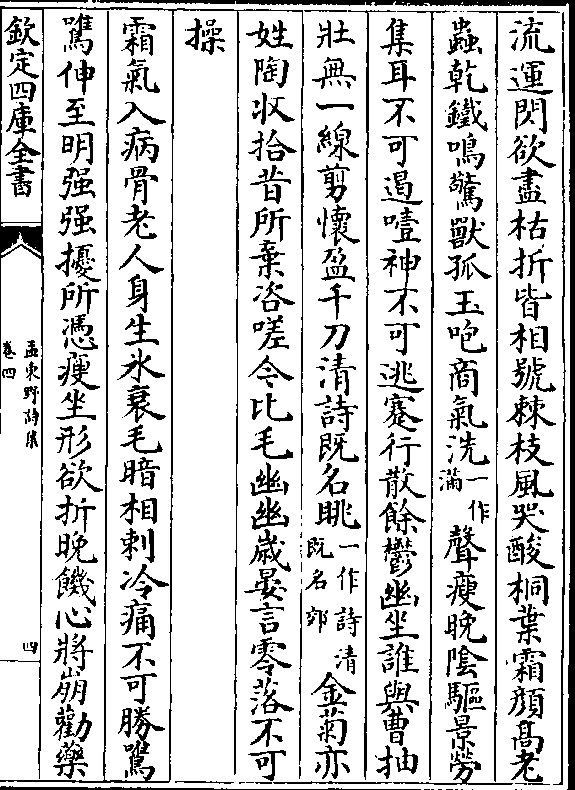 流運閃欲盡枯折皆相號棘枝風哭酸桐葉霜顔髙老
蟲乾鐵鳴驚獸孤玉咆商氣洗一作滿聲瘦晚陰驅景勞
集耳不可遏噎神不可逃蹇行散餘鬱幽坐誰與曹抽
壯無一線剪懷盈千刀清詩既名朓一作詩清既名郊金菊亦
姓陶收拾昔所棄咨嗟令比毛幽幽嵗晏言零落不可
操
霜氣入病骨老人身生氷衰毛暗相刺冷痛不可勝鷕
鷕伸至明强强攬所憑瘦坐形欲折晚饑心將崩勸藥
欽定四庫全書
孟東野詩集
卷四
四